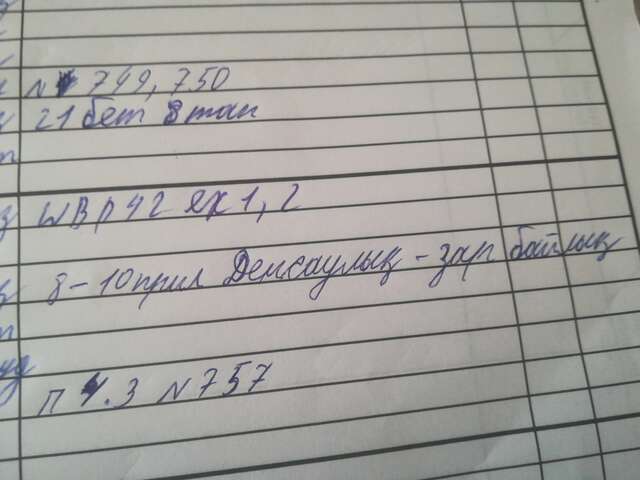 N 749, 750
21 бет 8 тап
WB p 42 ex 1, 2
8-10 прил Денсаулық - зар байлық
п 4.3 N 757